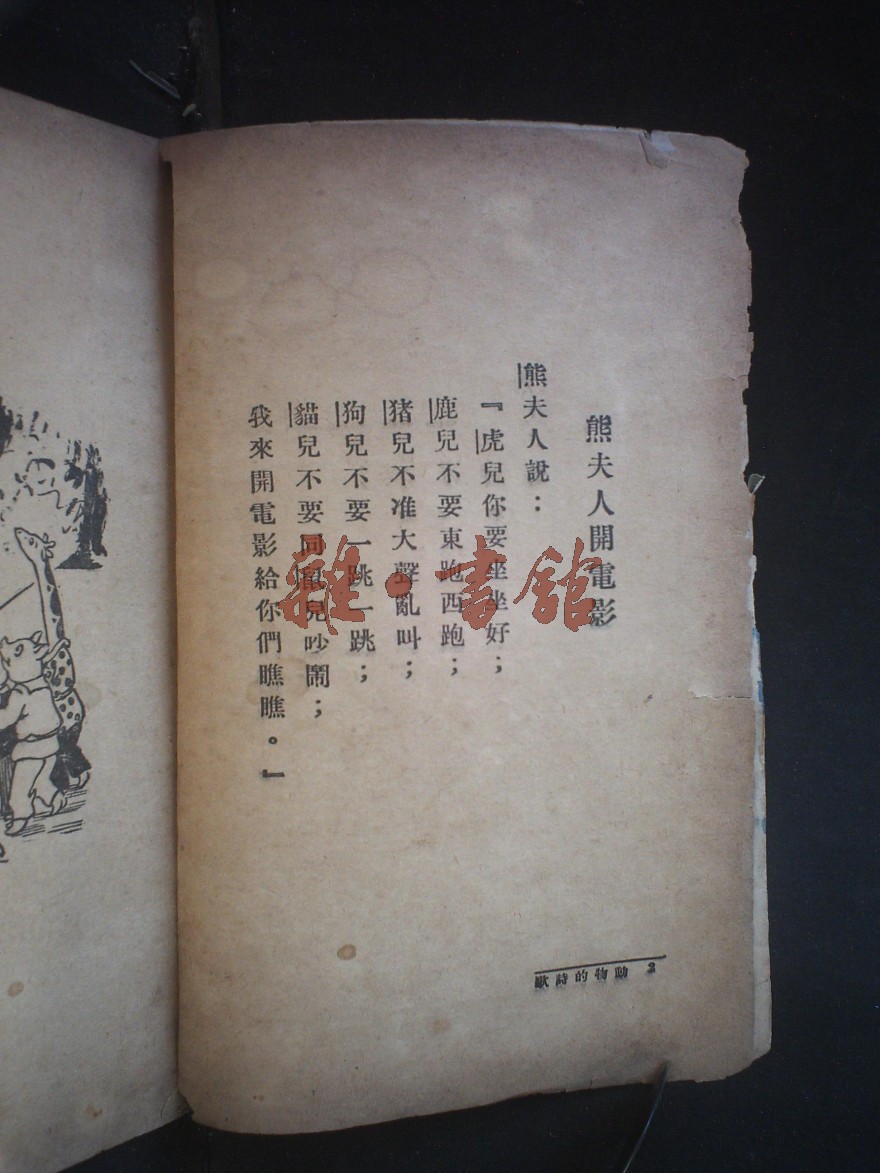 熊夫人開電影
熊夫人說：
『虎兒你要坐坐好；
鹿兒不要東跑西跑；
猪兒不准大聲亂叫；
狗兒不要一跳一跳；
貓兒不要同鼠兒吵鬧；
我來開電影給你們瞧瞧。』
動物的詩歌 2
雜·書館